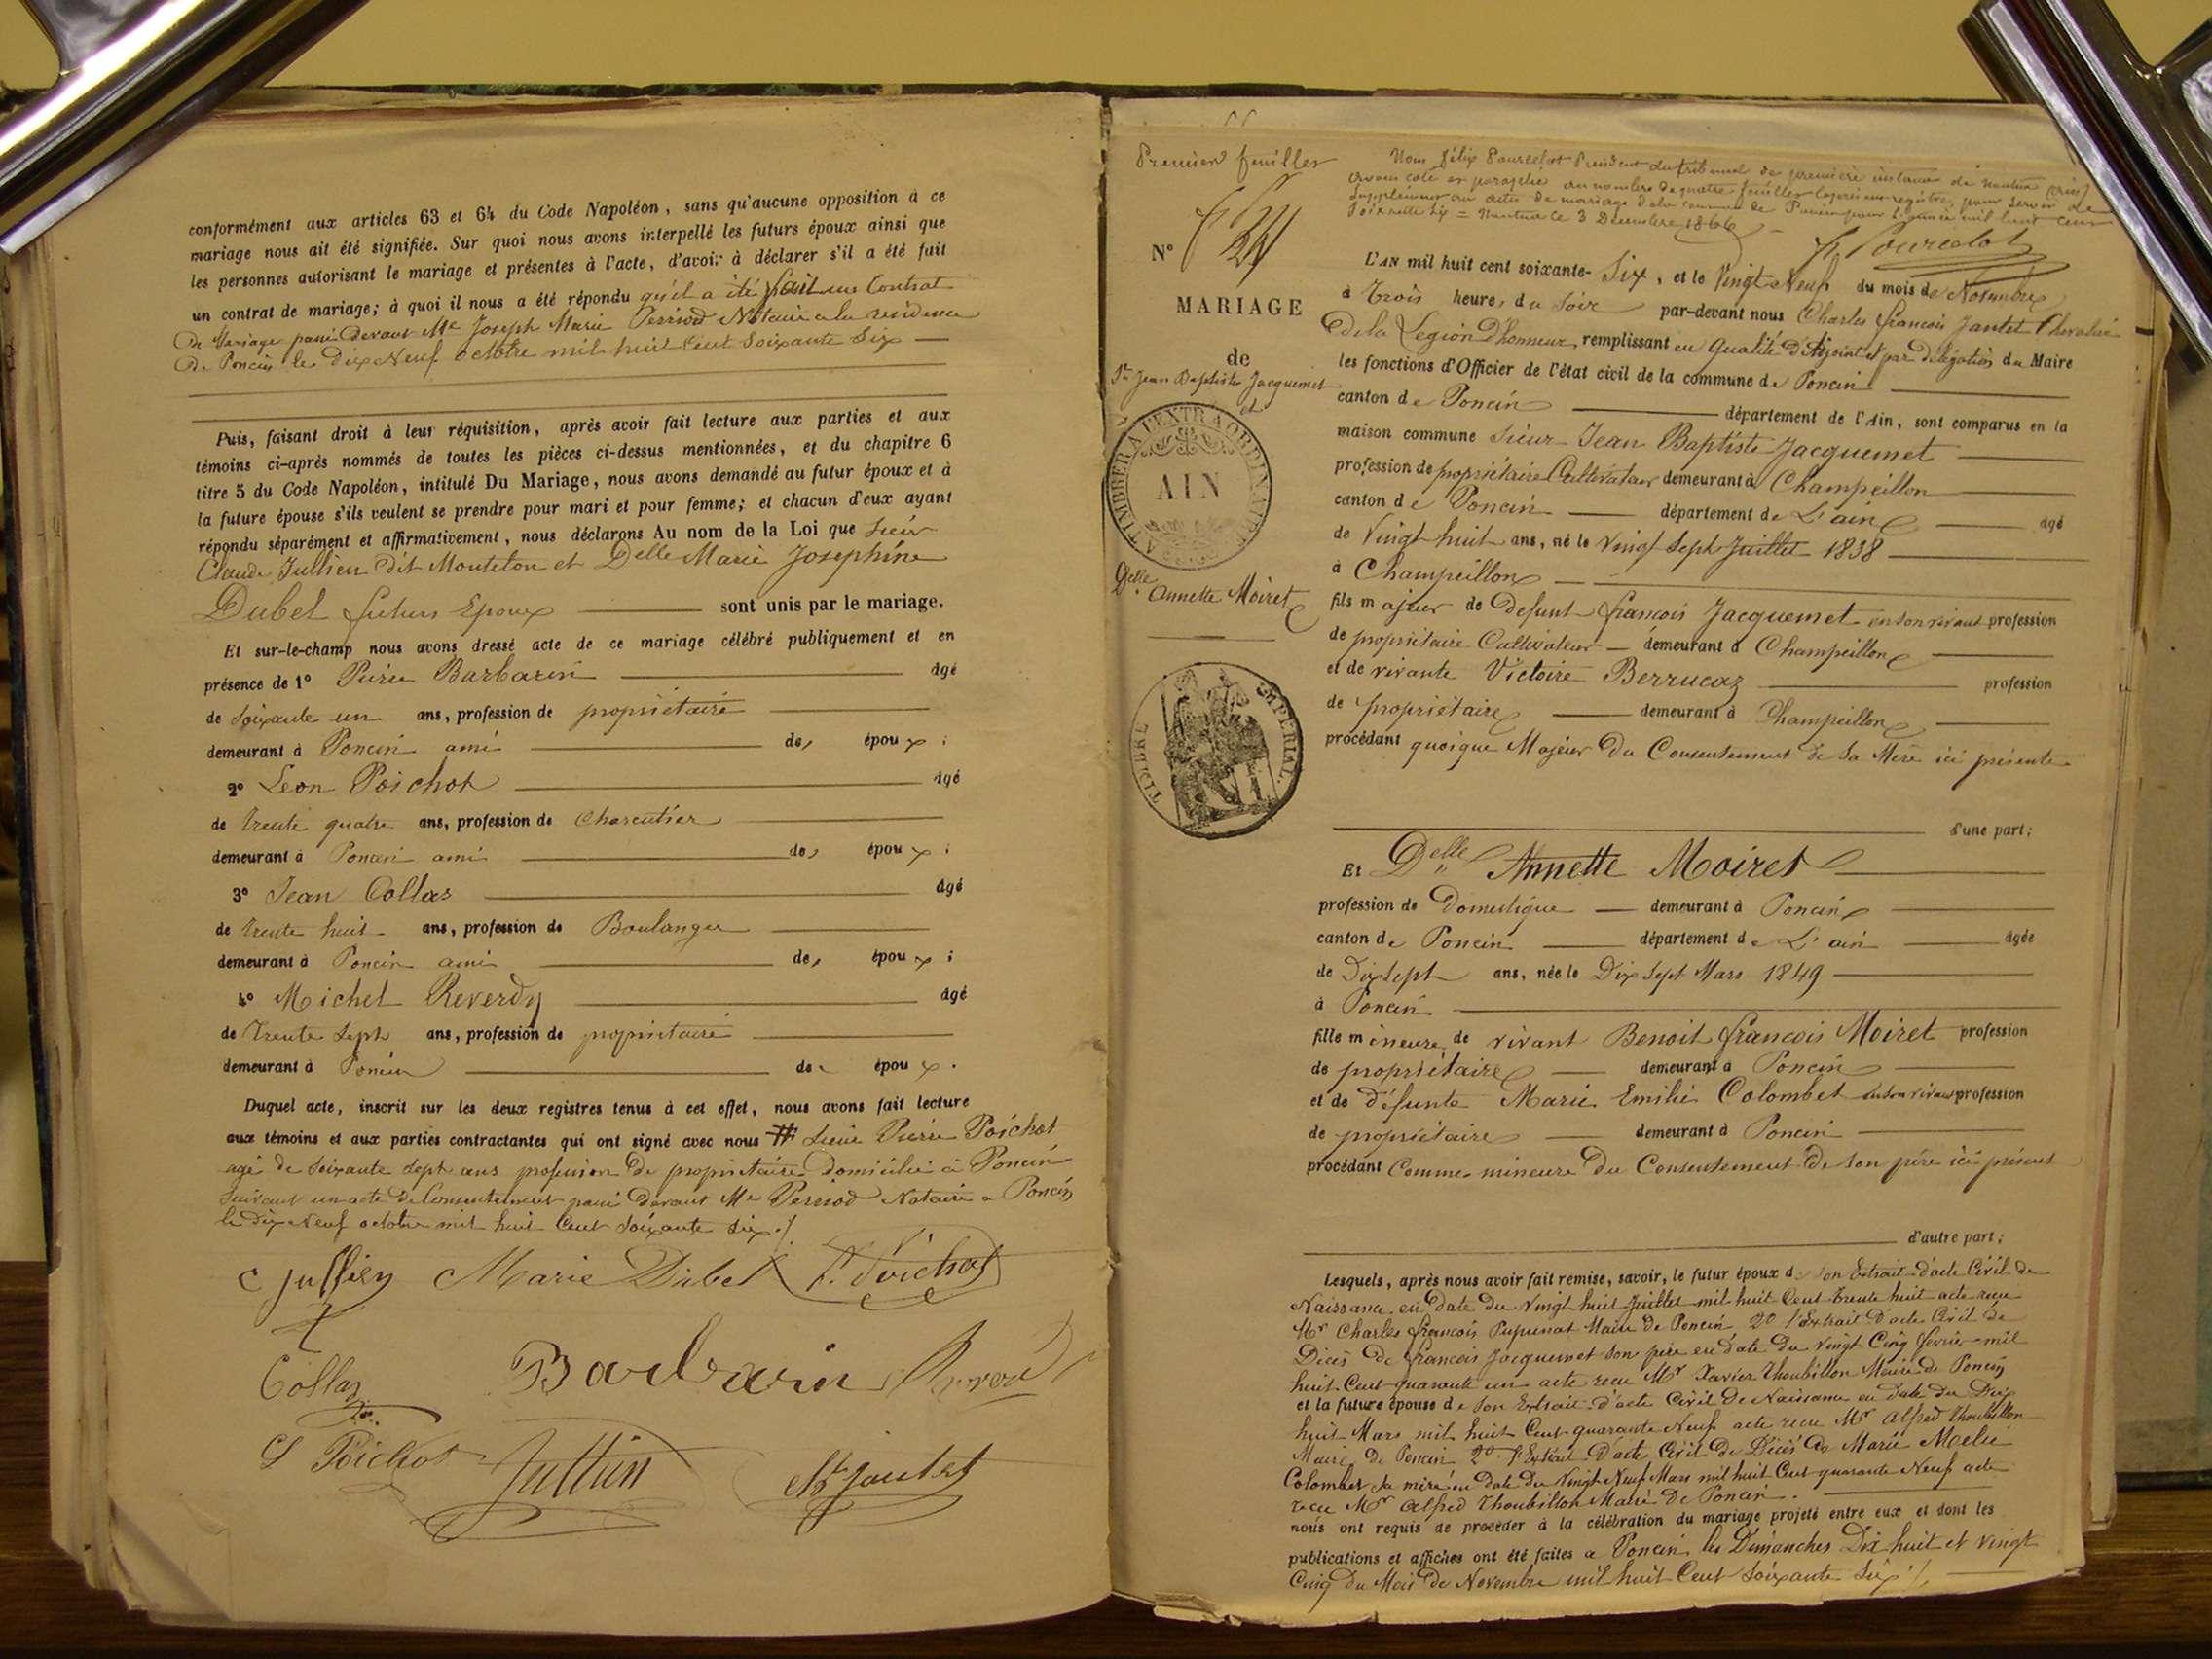 conformément aux articles 63 et 64 du Code Napoléon, sans qu'aucune opposition à ce
mariage nous ait été signifiée. Sur quoi nous avons interpellé les futurs époux ainsi que
les personnes autorisant le mariage et présentes à l'acte, d'avoir à déclarer s'il a été fait
un contrat de mariage; à quoi il nous a été répondu qu'il a été fait un Contrat
de Mariage passé devant Me Joseph Marie Perriod Notaire a la residence
de Poncin le dix Neuf octobre mil huit Cent Soixante Six
Puis, faisant droit à leur réquisition, après avoir fait lecture aux parties et aux
témoins ci-après nommés de toutes les pièces ci-dessus mentionnées, et du chapitre 6
titre 5 du Code Napoléon, intitulé Du Mariage, nous avons demandé au futur époux et à
la future épouse s'ils veulent se prendre pour mari et pour femme; et chacun d'eux ayant
répondu séparément et affirmativement, nous déclarons Au nom de la Loi que Sieur
Claude Jullien dit Monteton et Delle Marie Josephine
Dubet futurs Epoux sont unis par le mariage.
Et sur-le-champ nous avons dressé acte de ce mariage célébré publiquement et en
présence de 1° Pierre Barbarin âgé
de Soixante un ans, profession de propriétaire
demeurant à Poncin ami des époux ;
2° Leon Poichot âgé
de trente quatre ans, profession de Charcutier
demeurant à Poncin ami des époux ;
3° Jean Collas âgé
de trente huit ans, profession de Boulanger
demeurant à Poncin ami des époux ;
4° Michel Reverdy âgé
de trente Sept ans, profession de propriétaire
demeurant à Poncin des époux.
Duquel acte, inscrit sur les deux registres tenus à cet effet, nous avons fait lecture
aux témoins et aux parties contractantes qui ont signé avec nous # Sieur Pierre Poichot
agé de Soixante Sept ans profession de propriétaire domicilié à Poncin
Suivant un acte de Consentement passé devant Me Perriod Notaire a Poncin
le dix Neuf octobre mil huit Cent Soixante Six ./.
C jullien Marie Dubet P. Poichot
Collas Barbarin
L Poichot Jullien Ch Jantet
Premier feuillet
Nous Félix Pourcelot Président du tribunal de première instance de Nantua (Ain)
avons coté et paraphé au nombre de quatre feuilles le présent registre, pour servir de
Supplément aux actes de mariage de la commune de Poncin pour l'année mil huit cent
Soixante Six = Nantua le 3 Décembre 1866
F. Pourcelot
N° 24
MARIAGE
de
Sr Jean Baptiste Jacquemet
et
TIMBRER A L'EXTRAORDINAIRE
AIN
Delle Annette Moiret
TIMBRE IMPERIAL
L'AN mil huit cent soixante- Six, et le Vingt Neuf du mois de Novembre
à Trois heures du Soir par-devant nous Charles françois Jantet Chevalier
de la Legion d'honneur, remplissant en Qualité d'Adjoint et par délégation du Maire
les fonctions d'Officier de l'état civil de la commune de Poncin
canton de Poncin département de l'Ain, sont comparus en la
maison commune Sieur Jean Baptiste Jacquemet
profession de propriétaire Cultivateur demeurant à Champeillon
canton de Poncin département de L'ain âgé
de Vingt huit ans, né le Vingt Sept Juillet 1838
à Champeillon
fils majeur de Defunt françois Jacquemet en son vivant profession
de propriétaire Cultivateur demeurant à Champeillon
et de vivante Victoire Berrucaz profession
de propriétaire demeurant à Champeillon
procédant quoique Majeur du Consentement de Sa Mère ici présente
d'une part;
Et Delle Annette Moiret
profession de Domestique demeurant à Poncin
canton de Poncin département de L'ain âgée
de Dix Sept ans, née le Dix Sept Mars 1849
à Poncin
fille mineure de vivant Benoit françois Moiret profession
de propriétaire demeurant à Poncin
et de défunte Marie Emilie Colombet en son vivant profession
de propriétaire demeurant à Poncin
procédant Comme mineure du Consentement de son père ici présent
d'autre part;
Lesquels, après nous avoir fait remise, savoir, le futur époux de son Extrait d'acte Civil de
Naissance en date du Vingt huit Juillet mil huit Cent trente huit acte reçu
Mr Charles françois Pupunat Maire de Poncin 2° l'Extrait d'acte Civil de
Décès de françois Jacquemet Son père en date du Vingt Cinq février mil
huit Cent quarante un acte reçu Mr Xavier Thoubillon Maire de Poncin
et la future épouse de son Extrait d'acte Civil de Naissance en date du Dix
huit Mars mil huit Cent quarante Neuf acte reçu Mr Alfred Thoubillon
Maire de Poncin 2° l'Extrait d'acte Civil de Décès de Marie Melie
Colombet Sa mère en Date du Vingt Neuf Mars mil huit Cent quarante Neuf acte
reçu Mr Alfred Thoubillon Maire de Poncin.
nous ont requis de procéder à la célébration du mariage projeté entre eux et dont les
publications et affiches ont été faites a Poncin les Dimanches Dix huit et vingt
Cinq du Mois de Novembre mil huit Cent Soixante Six ./.